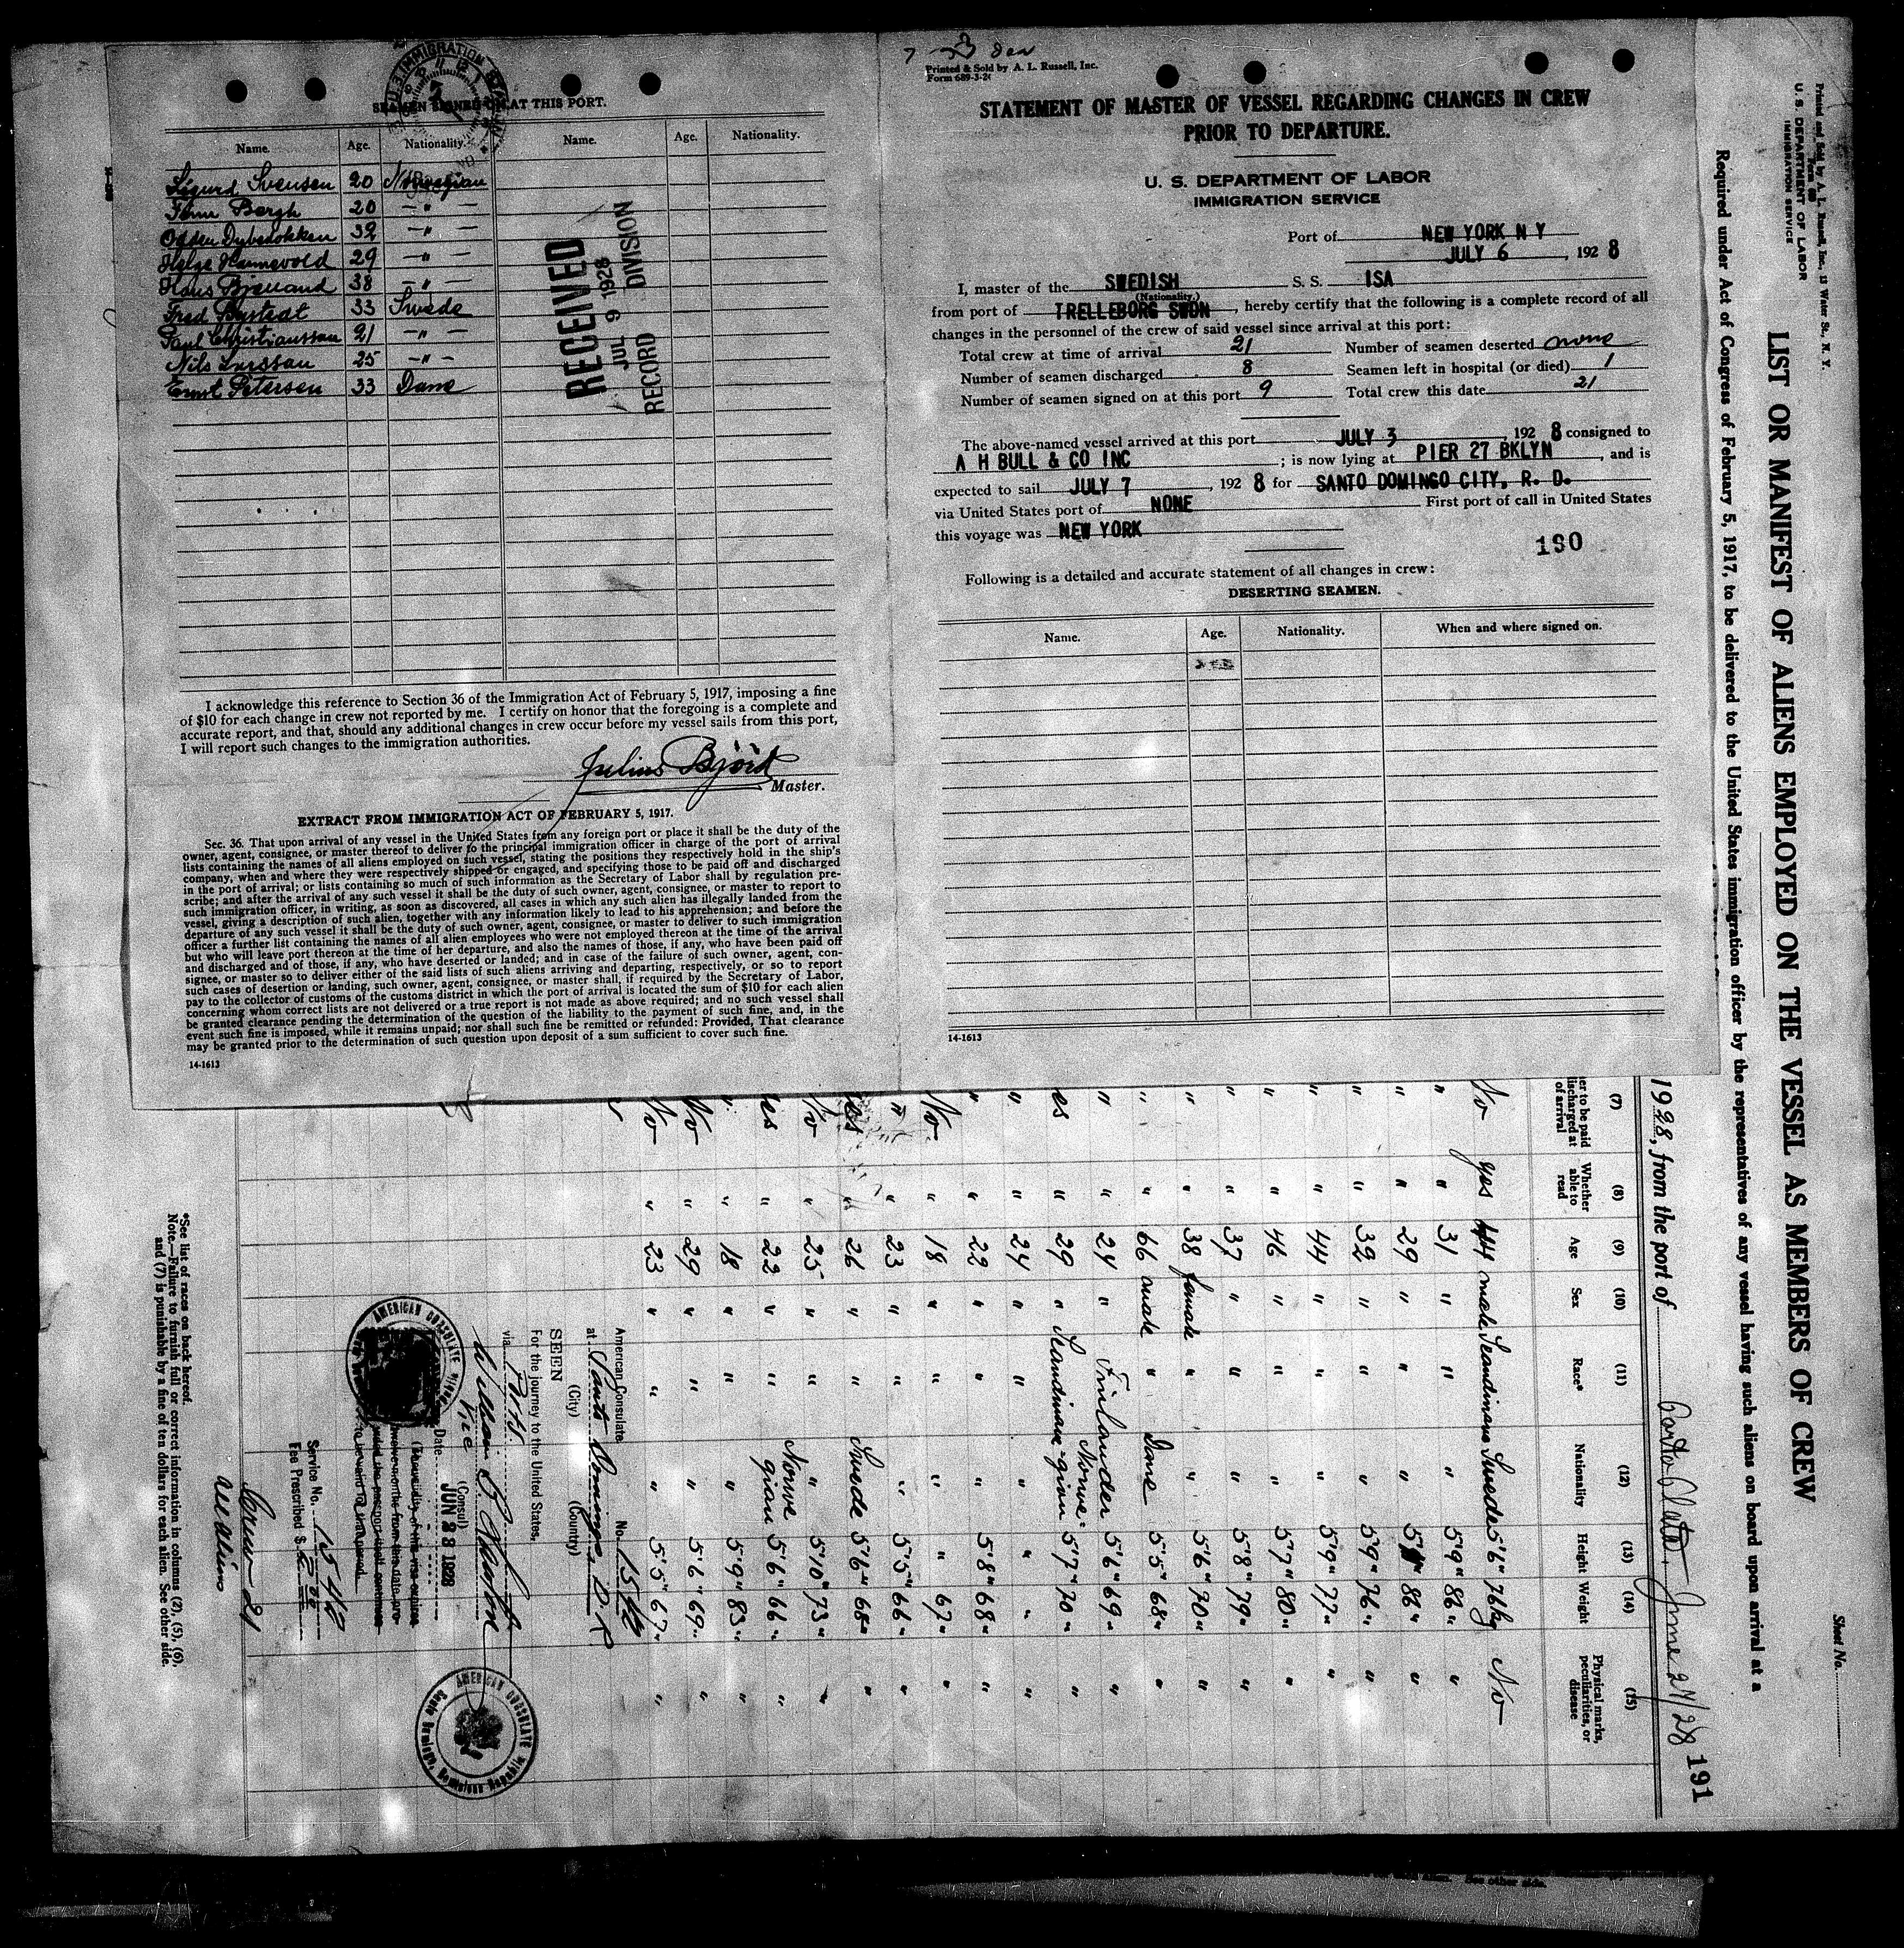 SEAMEN SIGNED ON AT THIS PORT.
Name. Age. Nationality. Name. Age. Nationality.
Sigurd Svensen 20 Norwegian
Finn Bergh 20 -"-
32 -"-
Helge Hannevold 29 -"-
Hans 38 -"-
Fred 33 Swede
Paul Christianssan 21 -"-
Nils 25 -"-
Ernst Petersen 33 Dane
RECEIVED
JUL 9 1928
RECORD DIVISION
I acknowledge this reference to Section 36 of the Immigration Act of February 5, 1917, imposing a fine
of $10 for each change in crew not reported by me. I certify on honor that the foregoing is a complete and
accurate report, and that, should any additional changes in crew occur before my vessel sails from this port,
I will report such changes to the immigration authorities.
Julius
Master.
EXTRACT FROM IMMIGRATION ACT OF FEBRUARY 5, 1917.
Sec. 36. That upon arrival of any vessel in the United States from any foreign port or place it shall be the duty of the
owner, agent, consignee, or master thereof to deliver to the principal immigration officer in charge of the port of arrival
lists containing the names of all aliens employed on such vessel, stating the positions they respectively hold in the ship's
company, when and where they were respectively shipped or engaged, and specifying those to be paid off and discharged
in the port of arrival; or lists containing so much of such information as the Secretary of Labor shall by regulation pre-
scribe; and after the arrival of any such vessel it shall be the duty of such owner, agent, consignee, or master to report to
such immigration officer, in writing, as soon as discovered, all cases in which any such alien has illegally landed from the
vessel, giving a description of such alien, together with any information likely to lead to his apprehension; and before the
departure of any such vessel it shall be the duty of such owner, agent, consignee, or master to deliver to such immigration
officer a further list containing the names of all alien employees who were not employed thereon at the time of the arrival
but who will leave port thereon at the time of her departure, and also the names of those, if any, who have been paid off
and discharged and of those, if any, who have deserted or landed; and in case of the failure of such owner, agent, con-
signee, or master so to deliver either of the said lists of such aliens arriving and departing, respectively, or so to report
such cases of desertion or landing, such owner, agent, consignee, or master shall, if required by the Secretary of Labor,
pay to the collector of customs of the customs district in which the port of arrival is located the sum of $10 for each alien
concerning whom correct lists are not delivered or a true report is not made as above required; and no such vessel shall
be granted clearance pending the determination of the question of the liability to the payment of such fine, and, in the
event such fine is imposed, while it remains unpaid; nor shall such fine be remitted or refunded: Provided, That clearance
may be granted prior to the determination of such question upon deposit of a sum sufficient to cover such fine.
14-1613
Printed & Sold by A. L. Russell, Inc.
Form 689-3-26
STATEMENT OF MASTER OF VESSEL REGARDING CHANGES IN CREW
PRIOR TO DEPARTURE.
U. S. DEPARTMENT OF LABOR
IMMIGRATION SERVICE
Port of NEW YORK N Y
JULY 6, 1928
I, master of the SWEDISH S. S. ISA
(Nationality.)
from port of TRELLEBORG SWDN, hereby certify that the following is a complete record of all
changes in the personnel of the crew of said vessel since arrival at this port:
Total crew at time of arrival 21 Number of seamen deserted none
Number of seamen discharged 8 Seamen left in hospital (or died) 1
Number of seamen signed on at this port 9 Total crew this date 21
The above-named vessel arrived at this port JULY 3, 1928 consigned to
A H BULL & CO INC; is now lying at PIER 27 BKLYN, and is
expected to sail JULY 7, 1928 for SANTO DOMINGO CITY, R. D.
via United States port of NONE First port of call in United States
this voyage was NEW YORK
190
Following is a detailed and accurate statement of all changes in crew:
DESERTING SEAMEN.
Name. Age. Nationality. When and where signed on.
14-1613
Printed and Sold by A. L. Russell, Inc., 13 Water St., N. Y.
U. S. DEPARTMENT OF LABOR
IMMIGRATION SERVICE
Sheet No.
LIST OR MANIFEST OF ALIENS EMPLOYED ON THE VESSEL AS MEMBERS OF CREW
Required under Act of Congress of February 5, 1917, to be delivered to the United States immigration officer by the representatives of any vessel having such aliens on board upon arrival at a
1928, from the port of Porto Plata, June 27/28 191
(7) (8) (9) (10) (11) (12) (13) (14) (15)
Whether able to read Age Sex Race* Nationality Height Weight Physical marks, peculiarities, or disease
No yes 44 male Scandinav Swede 5'6" 76 kg No
" " 31 " " " 5'9" 86 " "
" " 29 " " " 86 " "
" " 32 " " " 5'9" 76 " "
" " 44 " " " 5'9" 77 " "
" " 46 " " " 5'7" 80 " "
" " 37 " " " 5'8" 79 " "
" " 38 female " " 5'6" 70 " "
" " 66 male " Dane 5'5" 68 " "
" " 24 " Finlander 5'6" 69 " "
" 29 " Scandinav Norwegian 5'7" 70 " "
" " 24 " " " " " "
" " 22 " " " 5'8" 68 " "
No " 18 " " " " 67 " "
" " 23 " " " 5'5" 66 " "
" 26 " " Swede 5'6" 68 " "
No " 25 " " " 5'10" 73 " "
" 22 " " Norwegian 5'6" 66 " "
" " 18 " " " 5'9" 83 " "
No " 29 " " " 5'6" 69 " "
No " 23 " " " 5'5" 67 " "
American Consulate No. 1542
at Santo Domingo, D. R.
(City) (Country)
SEEN
For the journey to the United States,
via
William B.
Vice (Consul)
Date JUN 28 1928
Service No. 1542
Fee Prescribed $
AMERICAN CONSULATE
Santo Domingo, Dominican Republic
Crew 21
all aliens
*See list of races on back hereof.
Note.—Failure to furnish full or correct information in columns (2), (5), (6),
and (7) is punishable by a fine of ten dollars for each alien. See other side.